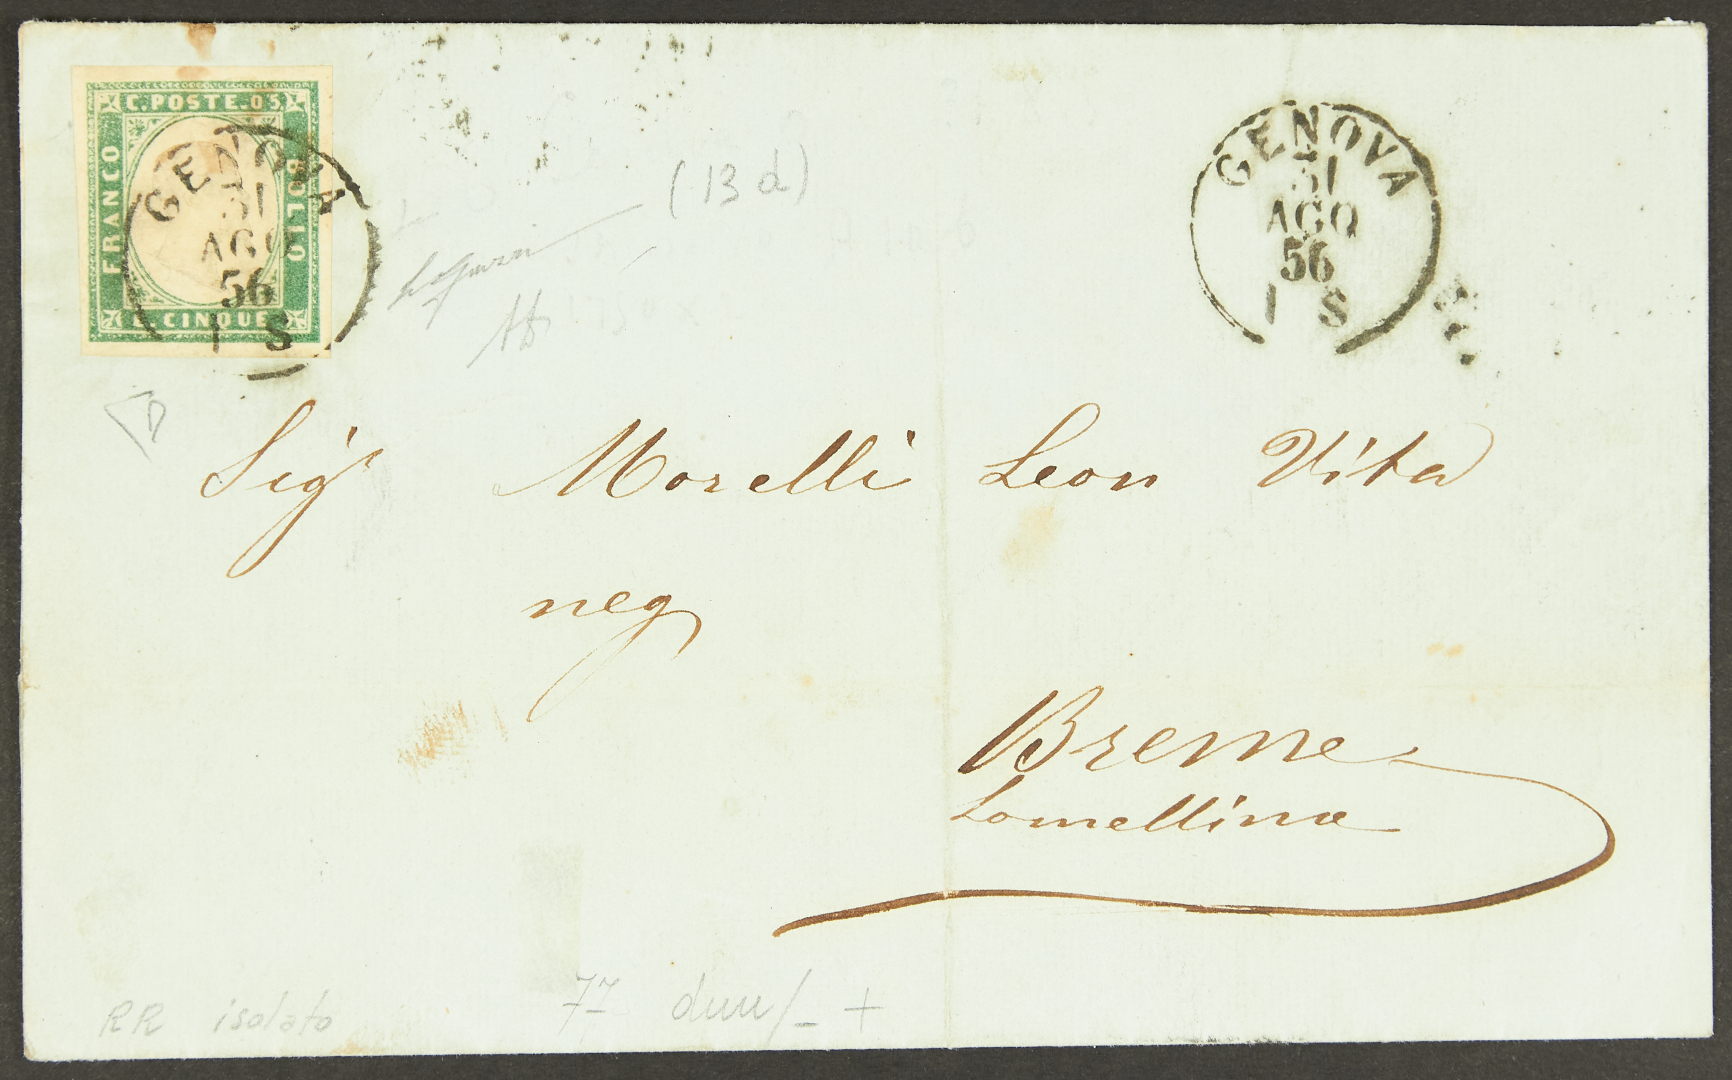 C. POSTE. 05
FRANCO
BOLLO
C. CINQUE
GENOVA
31
AGO
56
1 S
GENOVA
31
AGO
56
1 S
(13 d)
Sigr Morelli Leon Vita
neg
Breme
Lomellina
RR isolato
77
+